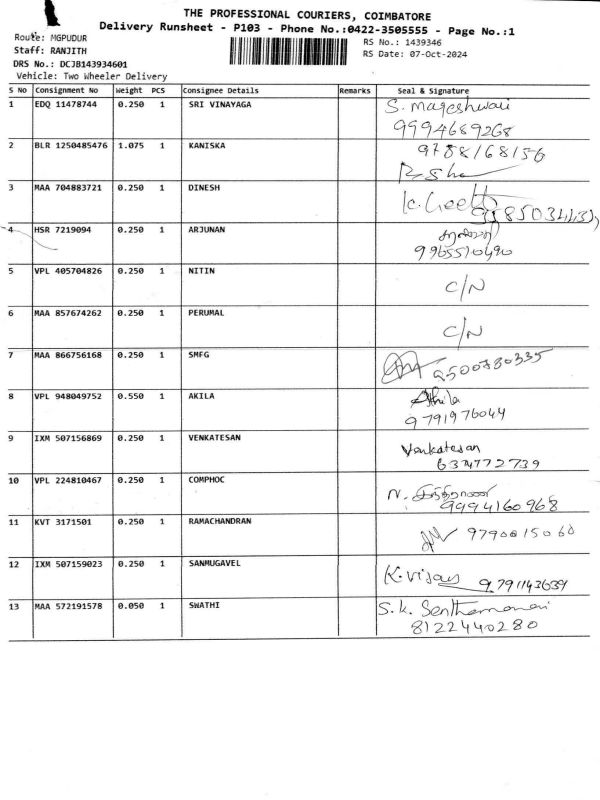 THE PROFESSIONAL COURIERS, COIMBATORE
Delivery Runsheet - P103 - Phone No.:0422-3505555 - Page No.:1
Route: MGPUDUR
RS No.: 1439346
Staff: RANJITH
RS Date: 07-Oct-2024
DRS No.: DCJB143934601
Vehicle: Two Wheeler Delivery
S No Consignment No Weight PCS Consignee Details Remarks Seal & Signature
1 EDQ 11478744 0.250 1 SRI VINAYAGA S. mageshwari
9994689268
2 BLR 1250485476 1.075 1 KANISKA 9788168156
3 MAA 704883721 0.250 1 DINESH K. Geetha
4 HSR 7219094 0.250 1 ARJUNAN
9965510490
5 VPL 405704826 0.250 1 NITIN C/N
6 MAA 857674262 0.250 1 PERUMAL C/N
7 MAA 866756168 0.250 1 SMFG 9500730335
8 VPL 948049752 0.550 1 AKILA Athila
9791976044
9 IXM 507156869 0.250 1 VENKATESAN Venkatesan
6374772739
10 VPL 224810467 0.250 1 COMPHOC N.
9994160968
11 KVT 3171501 0.250 1 RAMACHANDRAN 9790015060
12 IXM 507159023 0.250 1 SANMUGAVEL K. Vijay 9791143639
13 MAA 572191578 0.050 1 SWATHI S. K. Senthamarai
8122440280